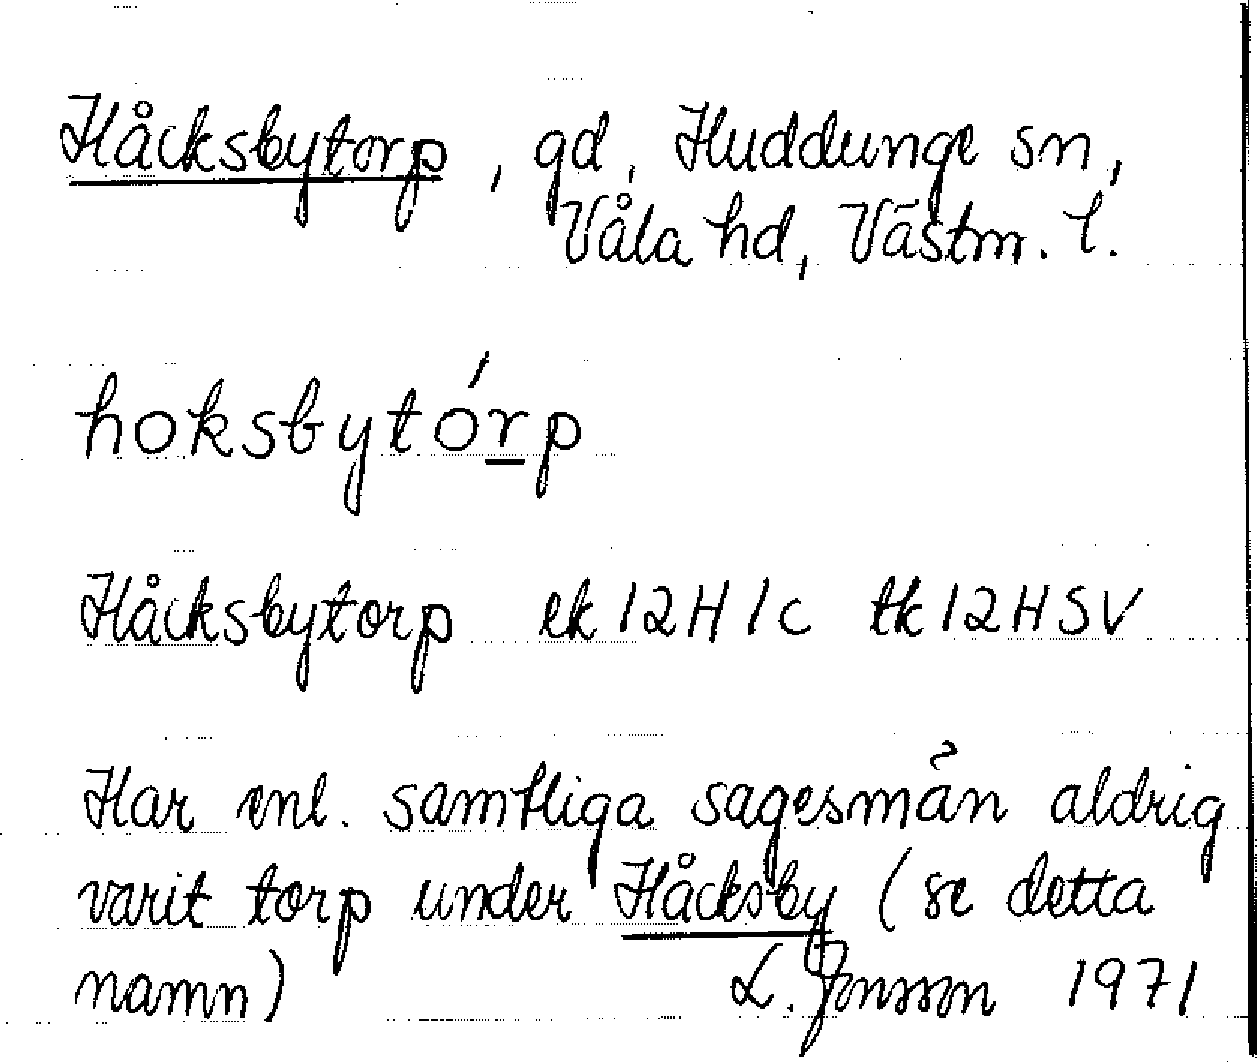 Håcksbytorp, gd, Huddunge sn,
Våla hd, Västm. l.
hoksbytórp
Håcksbytorp ek 12H 1c tk 12HSV
Har enl. samtliga sagesmän aldrig
varit torp under Håcksby (se detta
namn) L. Jonsson 1971